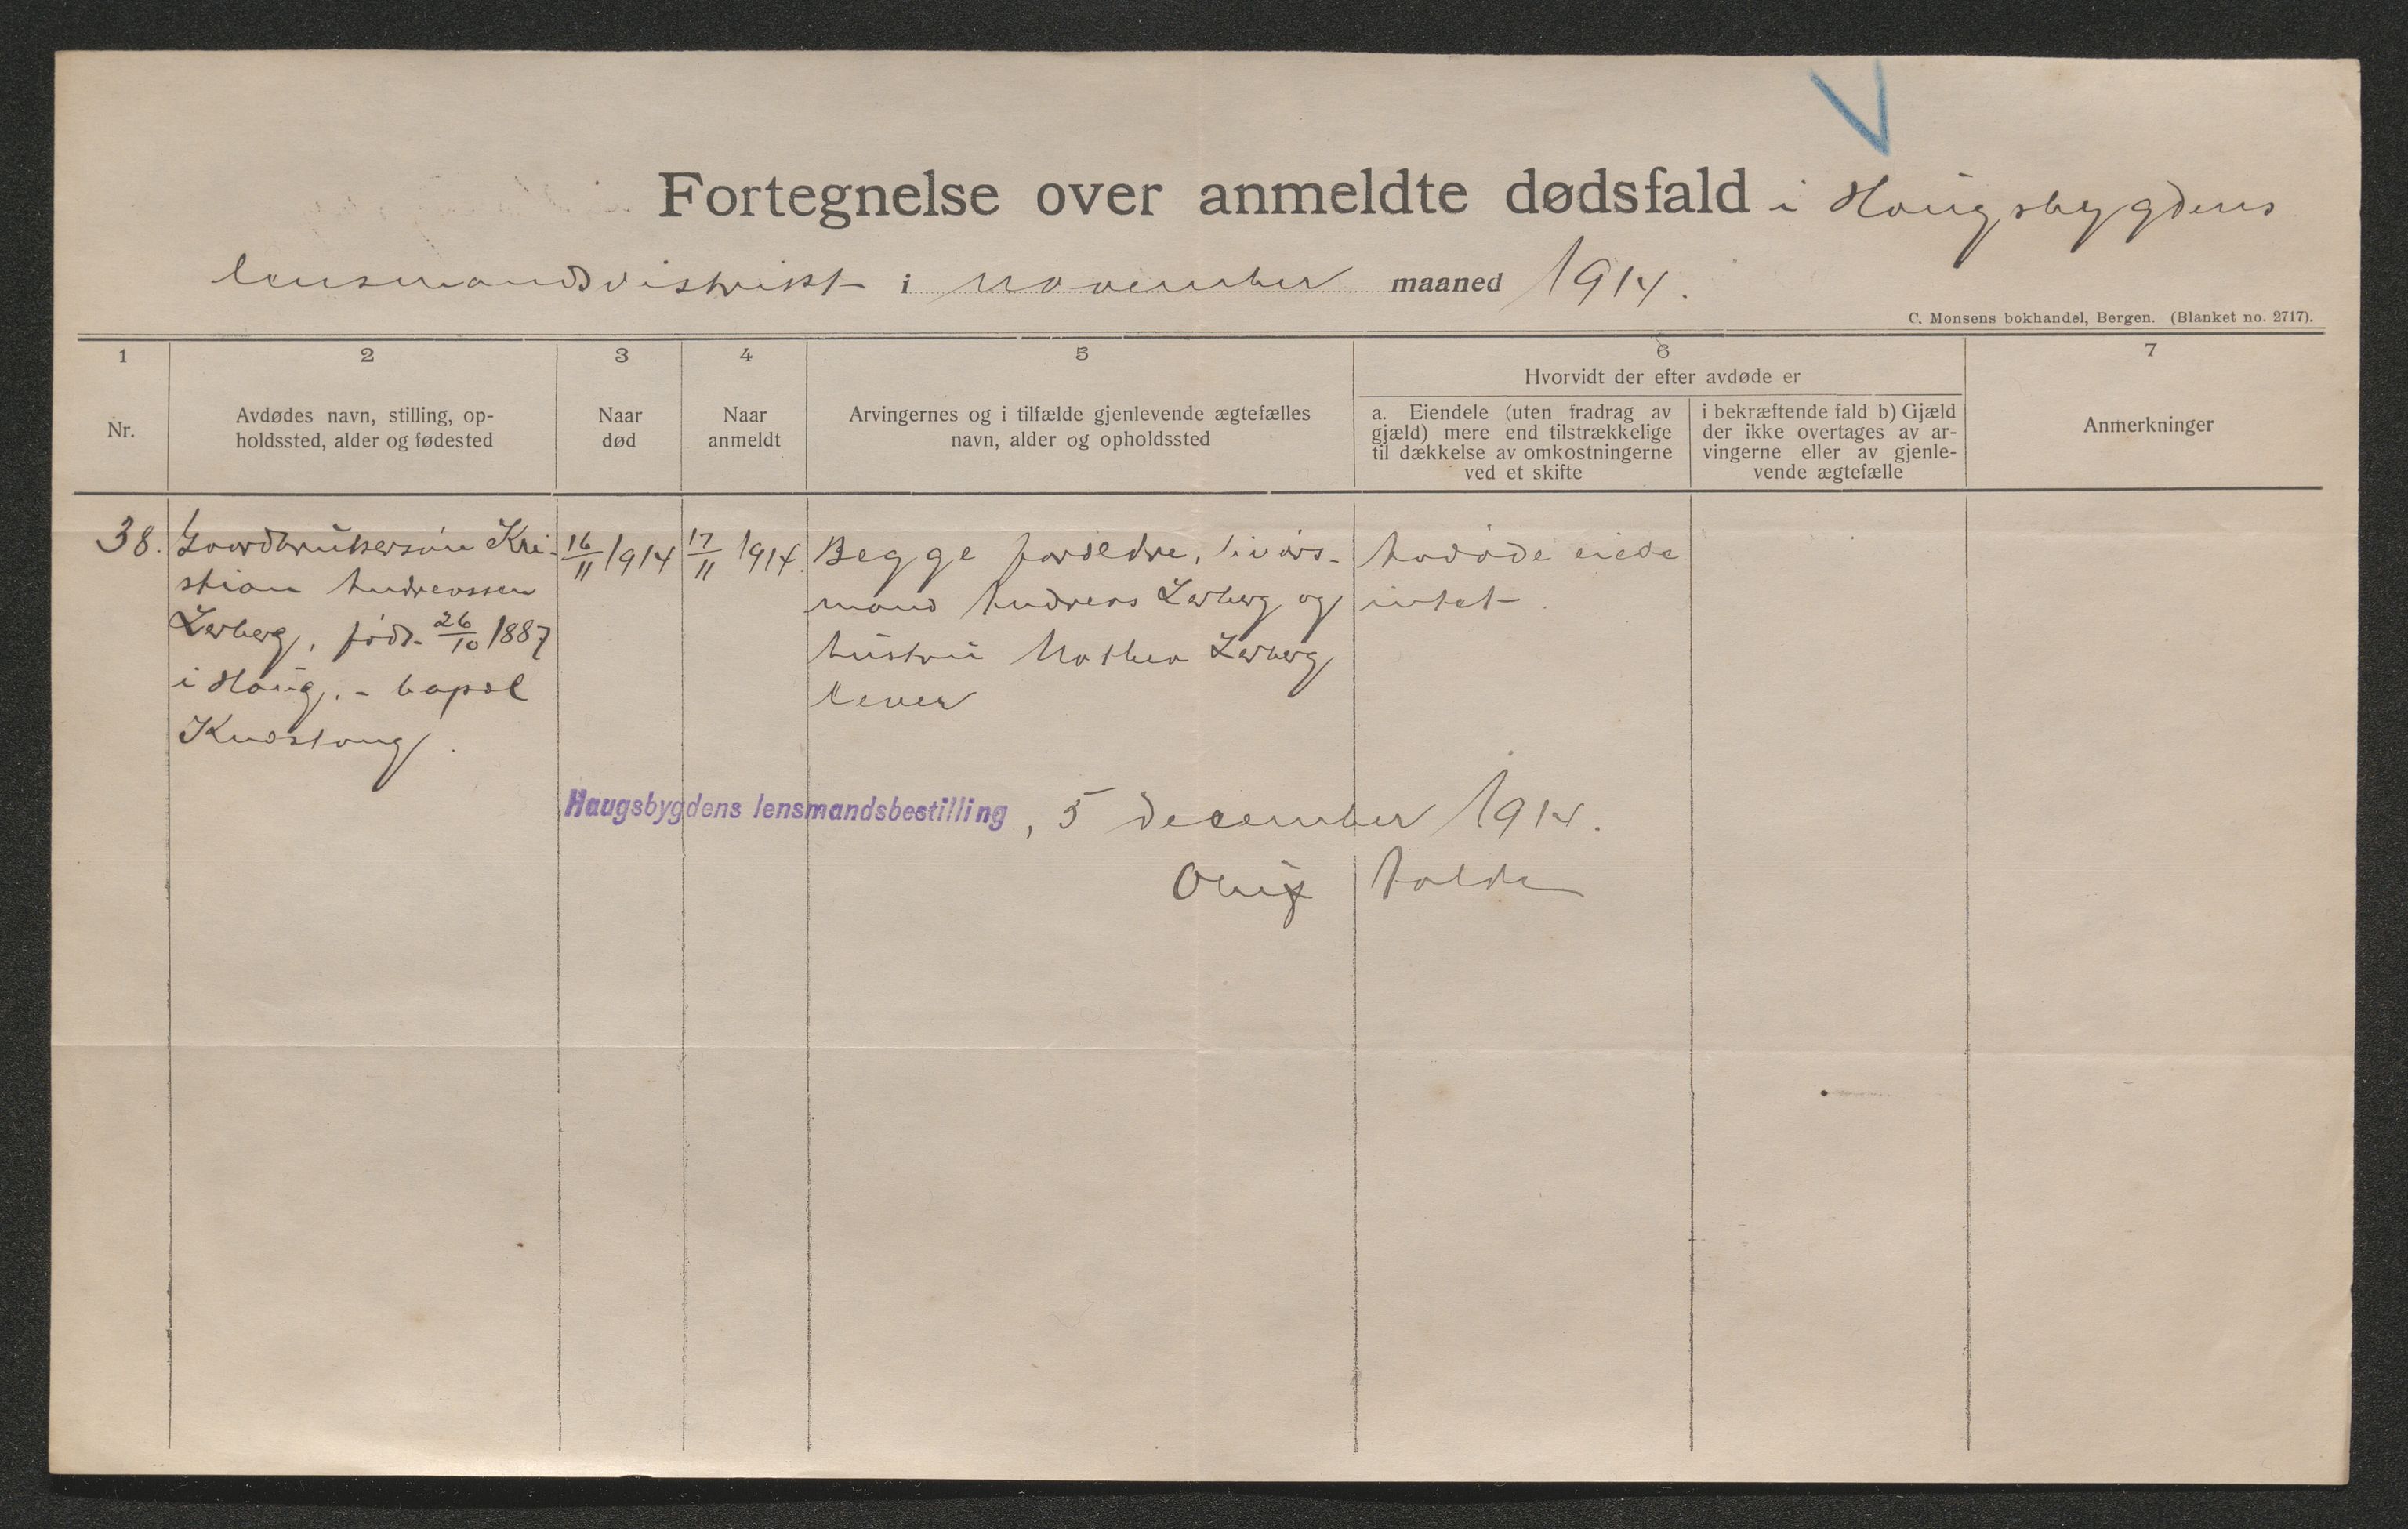 Fortegnelse over anmeldte dødsfald i Haugsbygdens
lensmandsdistrikt i november maaned 1914.
C. Monsens bokhandel, Bergen. (Blanket no. 2717).
1
2
3
4
5
6
7
Nr.
Avdødes navn, stilling, op-
holdssted, alder og fødested
Naar
død
Naar
anmeldt
Arvingernes og i tilfælde gjenlevende ægtefælles
navn, alder og opholdssted
Hvorvidt der efter avdøde er
a. Eiendele (uten fradrag av
gjæld) mere end tilstrækkelige
til dækkelse av omkostningerne
ved et skifte
i bekræftende fald b) Gjæld
der ikke overtages av ar-
vingerne eller av gjenle-
vende ægtefælle
Anmerkninger
38.
Gaardbrukersøn Kri-
stian Andreassen
Lerberg, født 26/10 1887
i Haug. -
16/11 1914
17/11 1914.
Begge forældre, livørs-
mand Andreas Lerberg og
hustru Mathea Lerberg
lever
Avdøde eiede
intet.
Haugsbygdens lensmandsbestilling, 5 december 1914.